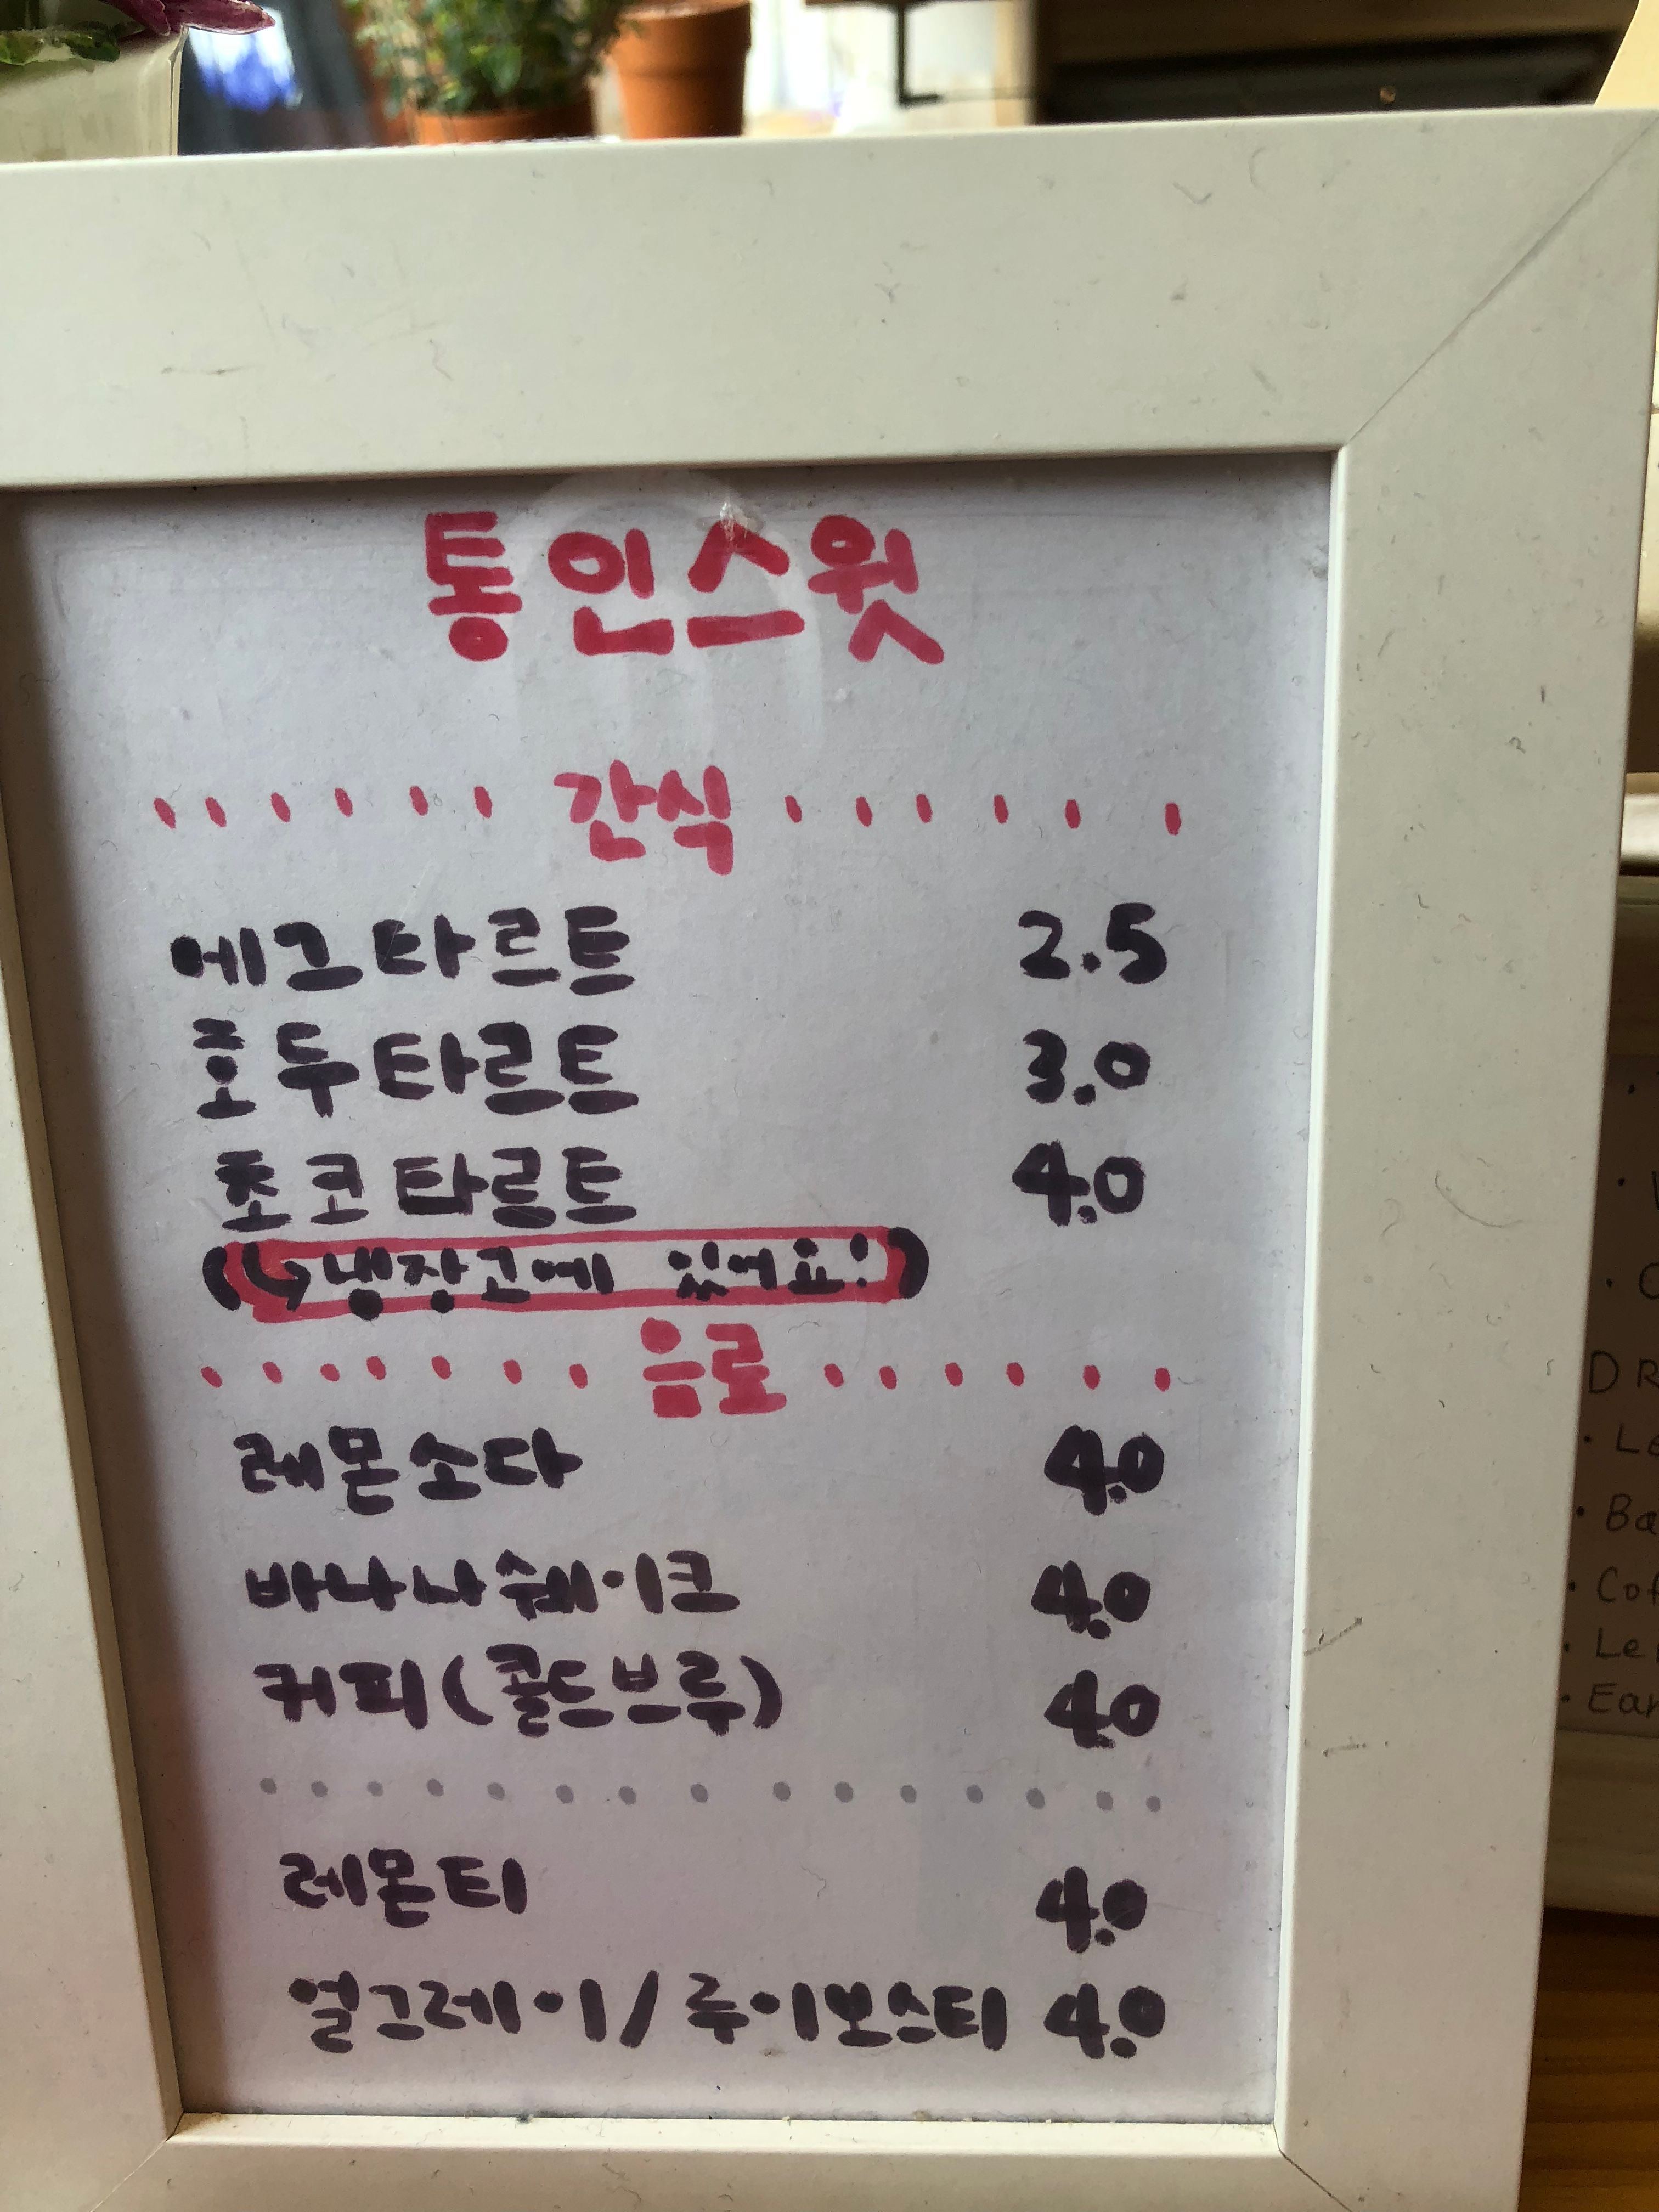 통인스윗
간식
에그타르트 2.5
호두타르트 3.0
초코타르트 4.0
(↳냉장고에 있어요!)
음료
레몬소다 4.0
바나나쉐이크 4.0
커피(콜드브루) 4.0
레몬티 4.0
얼그레이/루이보스티 4.0
DR
Le
Ba
Cof
Le
Ear